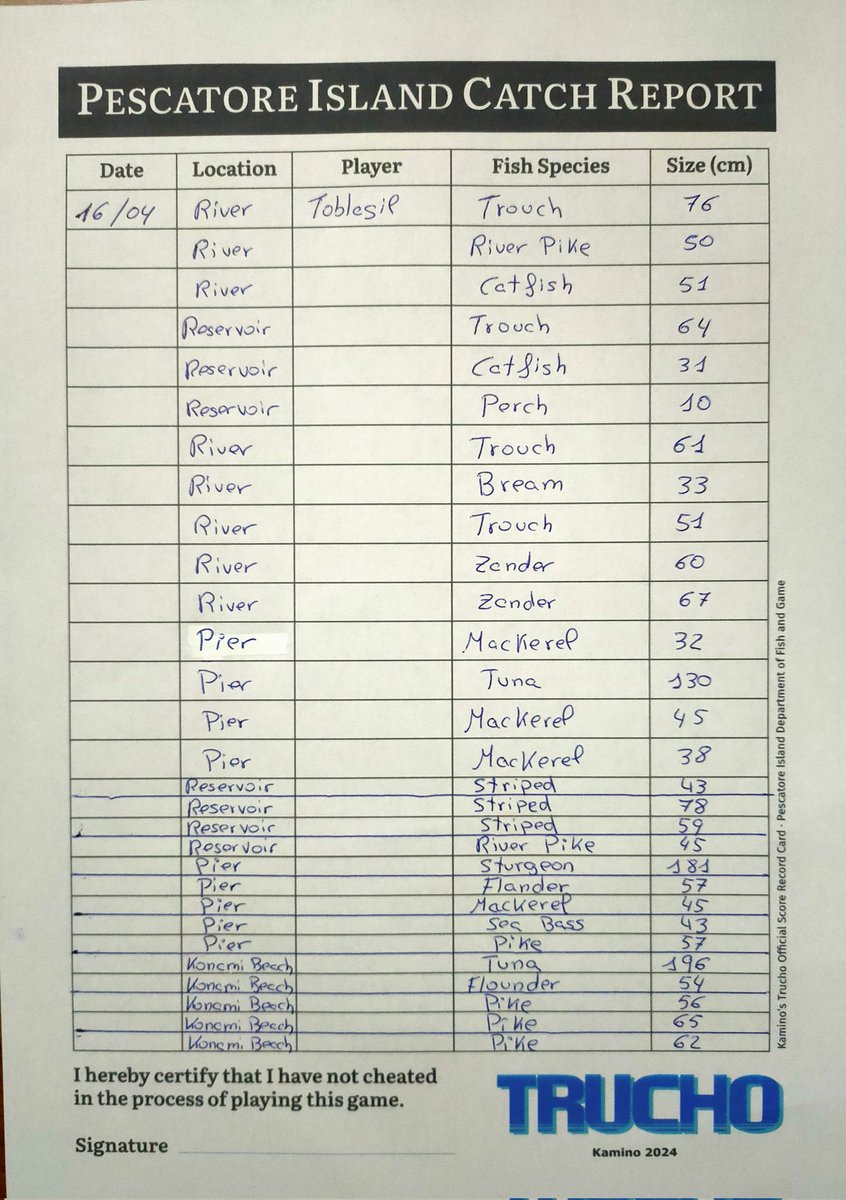 PESCATORE ISLAND CATCH REPORT
Date Location Player Fish Species Size (cm)
16/04 River Toblesil Trouch 76
River River Pike 50
River Catfish 51
Reservoir Trouch 64
Reservoir Catfish 31
Reservoir Perch 10
River Trouch 61
River Bream 33
River Trouch 51
River Zander 60
River Zander 67
Pier Mackerel 32
Pier Tuna 130
Pier Mackerel 45
Pier Mackerel 38
Reservoir Striped 43
Reservoir Striped 78
Reservoir Striped 59
Reservoir River Pike 45
Pier Sturgeon 181
Pier Flander 57
Pier Mackerel 45
Pier Sea Bass 43
Pier Pike 57
Konami Beach Tuna 196
Konami Beach Flounder 54
Konami Beach Pike 56
Konami Beach Pike 65
Konami Beach Pike 62
Kamino's Trucho Official Score Record Card · Pescatore Island Department of Fish and Game
I hereby certify that I have not cheated
in the process of playing this game.
Signature
TRUCHO
Kamino 2024